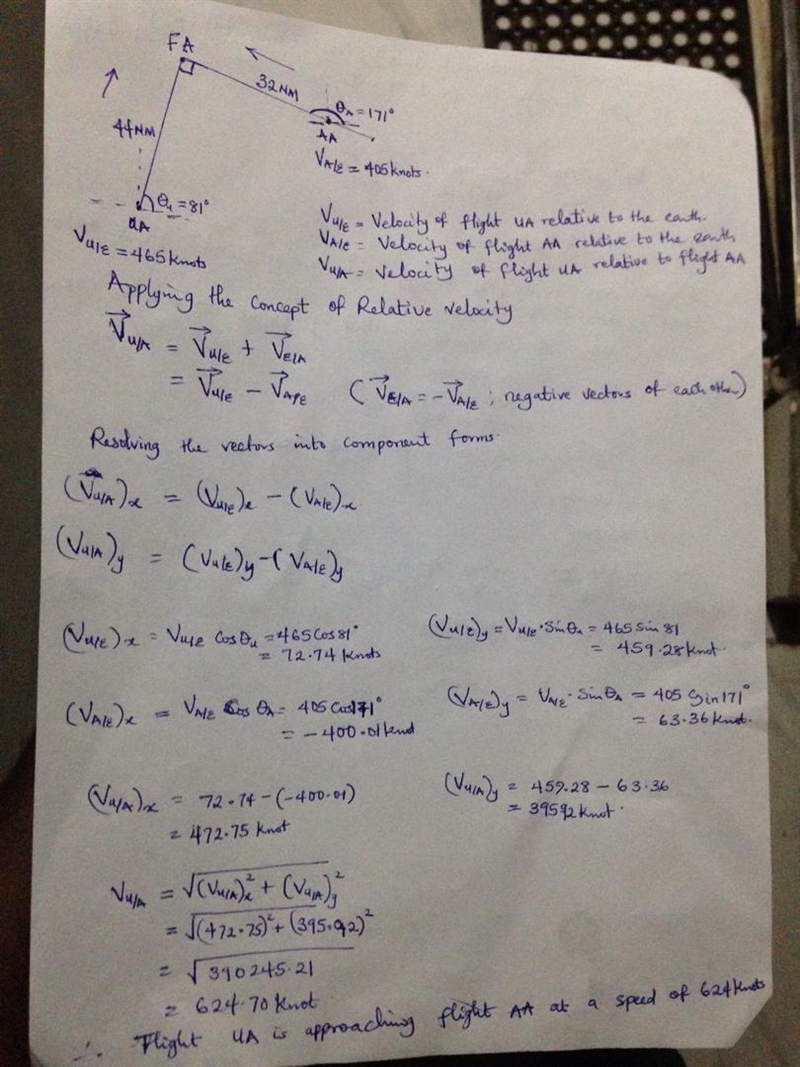 FA
32NM
θA = 171°
AA
44NM
VA/E = 405 knots.
θu = 81°
UA
Vu/E = 465 knots
Vu/E = Velocity of flight UA relative to the earth.
VA/E = Velocity of flight AA relative to the earth
Vu/A = Velocity of flight UA relative to flight AA
Applying the concept of Relative velocity
V⃗u/A = V⃗u/E + V⃗E/A
= V⃗u/E - V⃗A/E ( V⃗E/A = -V⃗A/E ; negative vectors of each other)
Resolving the vectors into component forms.
(Vu/A)x = (Vu/E)x - (VA/E)x
(Vu/A)y = (Vu/E)y - (VA/E)y
(Vu/E)x = Vu/E Cosθu = 465 Cos 81°
= 72.74 knots
(Vu/E)y = Vu/E · Sinθu = 465 Sin 81
= 459.28 knot.
(VA/E)x = VA/E Cos θA = 405 Cos 171°
= -400.01 knot
(VA/E)y = VA/E · SinθA = 405 Sin 171°
= 63.36 knot.
(Vu/A)x = 72.74 - (-400.01)
= 472.75 knot
(Vu/A)y = 459.28 - 63.36
= 395.92 knot.
Vu/A = √(Vu/A)x² + (Vu/A)y²
= √(472.75)² + (395.92)²
= √390245.21
= 624.70 knot.
∴ Flight UA is approaching flight AA at a speed of 624 knots